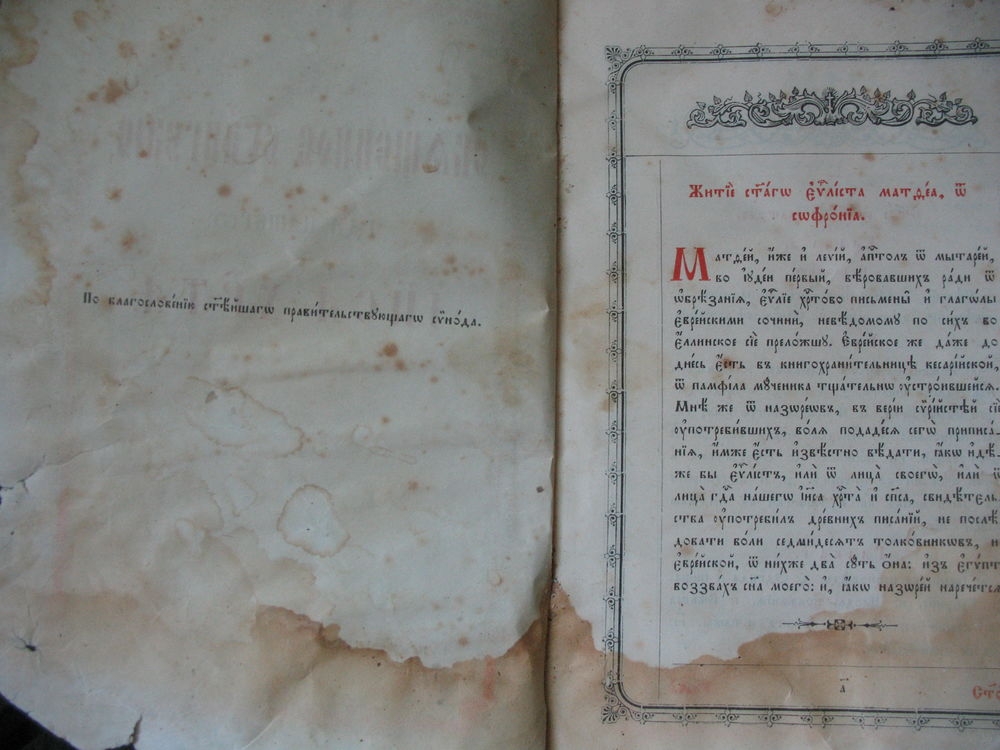 По благослове́нїю ст҃ѣ́йшагѡ прави́тельствующагѡ сѷно́да.
Житїѐ ст҃а́гѡ є҆ѵⷢ҇лі́ста матѳе́а, ѿ
сѡфро́нїа.
Матѳе́й, и҆́же и҆ леѵі́й, а҆пⷭ҇толъ ѿ мытаре́й,
во і҆ꙋде́и пе́рвый, вѣ́ровавшихъ ра́ди ѿ
ѡ҆брѣ́занїѧ, є҆ѵⷢ҇лїе хрⷭ҇то́во писмены̀ и҆ глаго́лы
є҆вре́йскими сочинѝ, невѣ́домомꙋ по си́хъ во
є҆́ллинское сїѐ прело́жшꙋ. Є҆вре́йское же да́же до
дне́сь є҆́сть въ книгохрани́тельницѣ кесарі́йской,
ѿ памфі́ла мꙋ́ченика тща́тельнѡ ᲂу҆стро́ившейсѧ.
Мнѣ́ же ѿ назѡре́ѡвъ, въ ве́рїи сѷрі́йстѣй сїѐ
ᲂу҆потреби́вшихъ, во́лѧ подаде́сѧ сегѡ̀ приписа́-
нїѧ, и҆́мже є҆́сть и҆звѣ́стно вѣ́дати, ꙗ҆́кѡ и҆дѣ́-
же бы є҆ѵⷢ҇лі́стъ, и҆лѝ ѿ лица̀ своегѡ̀, и҆лѝ ѿ
лица̀ гдⷭ҇а на́шегѡ і҆и҃са хрⷭ҇та̀ и҆ сп҃са, свидѣ́тель-
ства ᲂу҆потреби́лъ дре́внихъ писа́нїй, не послѣ́-
довати во́ли седми́десѧтъ толко́вникѡвъ, но
є҆вре́йской, ѿ ни́хже два̀ сꙋ́ть ѻ҆́на: и҆з̾ є҆гѵ́пта
воззва́хъ сн҃а моего̀: и҆, ꙗ҆́кѡ назѡре́й нарече́тсѧ
а҃